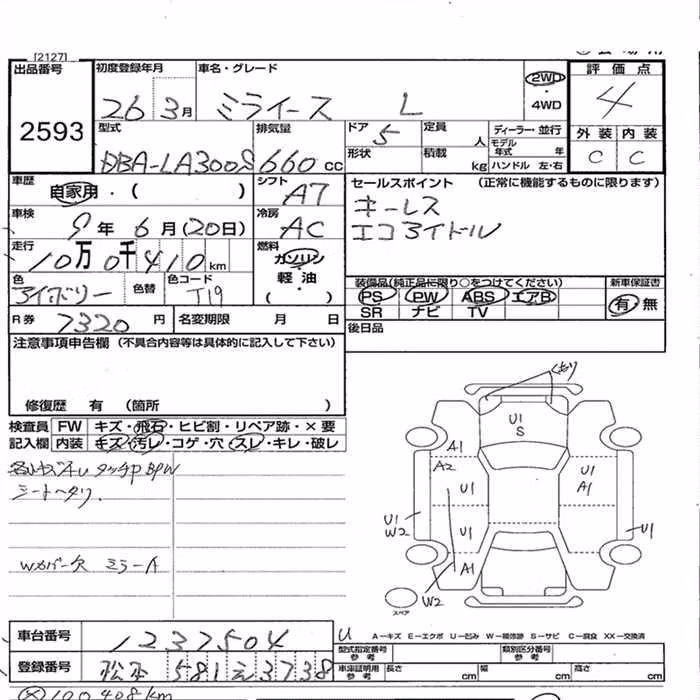 [2127]
出品番号
2593
初度登録年月 車名・グレード
26 3月 ミライース L
2WD
・
4WD
評価点
4
外装 内装
C C
型式 排気量 ドア 定員 ディーラー・並行
DBA-LA300S 660cc 5 人 モデル年式 年
形状 積載 kg ハンドル 左・右
車歴 自家用・( ) シフト A7
セールスポイント (正常に機能するものに限ります)
キーレス
エコアイドル
車検 9年6月(20日) 冷房 AC
走行 10万0千410km 燃料 ガソリン
軽・油
( )
色 アイボリー 色替 色コード T19
装備品(純正品に限り○をつけてください) 新車保証書
PS PW ABS エアB 有・無
SR ナビ TV
R券 7320円 名変期限 月 日
後日品
注意事項申告欄 (不具合内容等は具体的に記入して下さい)
修復歴 有 (箇所 )
検査員 FW キズ・飛石・ヒビ割・リペア跡・×要
記入欄 内装 キズ・汚レ・コゲ・穴・スレ・キレ・破レ
シートヘタリ.
Wカバー欠 ミラーA
くもり
U1
S
A1
A2
U1
U1
A1
U1
W2
U1
U1
A1
W2
スペア
車台番号 1237504
U A-キズ E-エクボ U-凹み W-補修跡 S-サビ C-腐食 XX-交換済
型式指定番号 参考 類別区分番号 参考
登録番号 松本 581 え 3738
車庫証明用 参考 長さ cm 幅 cm 高さ cm
(×)100,408km